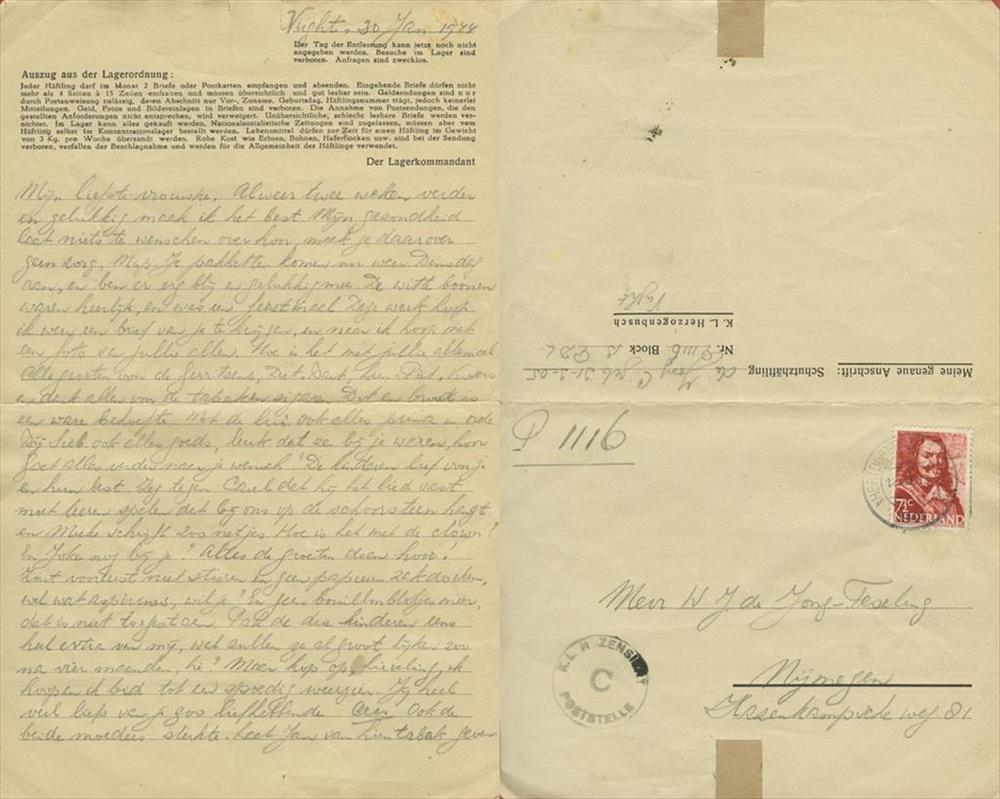 Vught, 30 Jan 1944
Der Tag der Entlassung kann jetzt noch nicht
angegeben werden. Besuche im Lager sind
verboten. Anfragen sind zwecklos.
Auszug aus der Lagerordnung:
Jeder Häftling darf im Monat 2 Briefe oder Postkarten empfangen und absenden. Eingehende Briefe dürfen nicht
mehr als 4 Seiten à 15 Zeilen enthalten und müssen übersichtlich und gut lesbar sein. Geldsendungen sind nur
durch Postanweisung zulässig, deren Abschnitt nur Vor-, Zuname, Geburtsdag, Häftlingsnummer trägt, jedoch keinerlei
Mitteilungen. Geld, Fotos und Bildereinlagen in Briefen sind verboten. Die Annahme von Postsendungen, die den
gestellten Anforderungen nicht entsprechen, wird verweigert. Unübersichtliche, schlecht lesbare Briefe werden ver-
nichtet. Im Lager kann alles gekauft werden. Nationalsozialistische Zeitungen sind zugelassen, müssen aber vom
Häftling selbst im Konzentrationslager bestellt werden. Lebensmittel dürfen zur Zeit für einen Häftling im Gewicht
von 3 Kg. pro Woche übersandt werden. Rohe Kost wie Erbsen, Bohnen, Haferflocken usw. sind bei der Sendung
verboten, verfallen der Beschlagnahme und werden für die Allgemeinheit der Häftlinge verwendet.
Der Lagerkommandant
Mijn liefste vrouwke, Alweer twee weken verder
en gelukkig maak ik het best Mijn gesondheid
laat niets te wenschen over hoor, maak je daarover
geen zorg, Je pakketten komen nu weer Dinsdag
aan, en ben er erg blij en gelukkig mee. De witte boonen
waren heerlijk, en was een feestmaal Deze week hoop
ik weer een brief van je te krijgen, en naar ik hoop met
een foto van jullie allen. Hoe is het met jullie allemaal
Alle groeten voor de Gerritsens,
en dank allen voor de tabak en sigaren. Dat en brood is
een ware behoefte. Met de ook alles prima in orde
Bij ook alles goeds, leuk dat ze bij je waren, hoor
Gaat alles verder naar je wensch? De kinderen lief voor je
en hun best Zeg tegen Carel dat hij het lied vast
moet leeren spelen dat bij ons op de schoorsteen hangt
en Mieke schrijft zoo netjes. Hoe is het met de clown?
En Joke nog bij je? Alles de groeten doen hoor!
Zout voorleest niet sturen en geen papieren zakdoeken,
wel wat aspirines, wil je? En geen bouillonblokjes meer,
dat is niet toegestaan Pak de drie kinderen eens
heel extra van mij, wat zullen ze al groot lijken zoo
na vier maanden, hè? Maar kop op, lieveling, ik
hoop en ik bid tot een spoedig weerzien. Zij heel
veel liefs van je zoo liefhebbende Cees Ook de
beide moeders sterkte. Laat Jan van tabak geven
Meine genaue Anschrift:
Schutzhäftling de Jong C geb. 31-3-05
Nr. P 1116 Block 13
K. L. Herzogenbusch
Vught
P 1116
7½ c
NEDERLAND
K.L. H ZENSIERT
C
POSTSTELLE
Mevr W J de Jong-Teseling
Nijmegen
Hasenkampsche weg 81